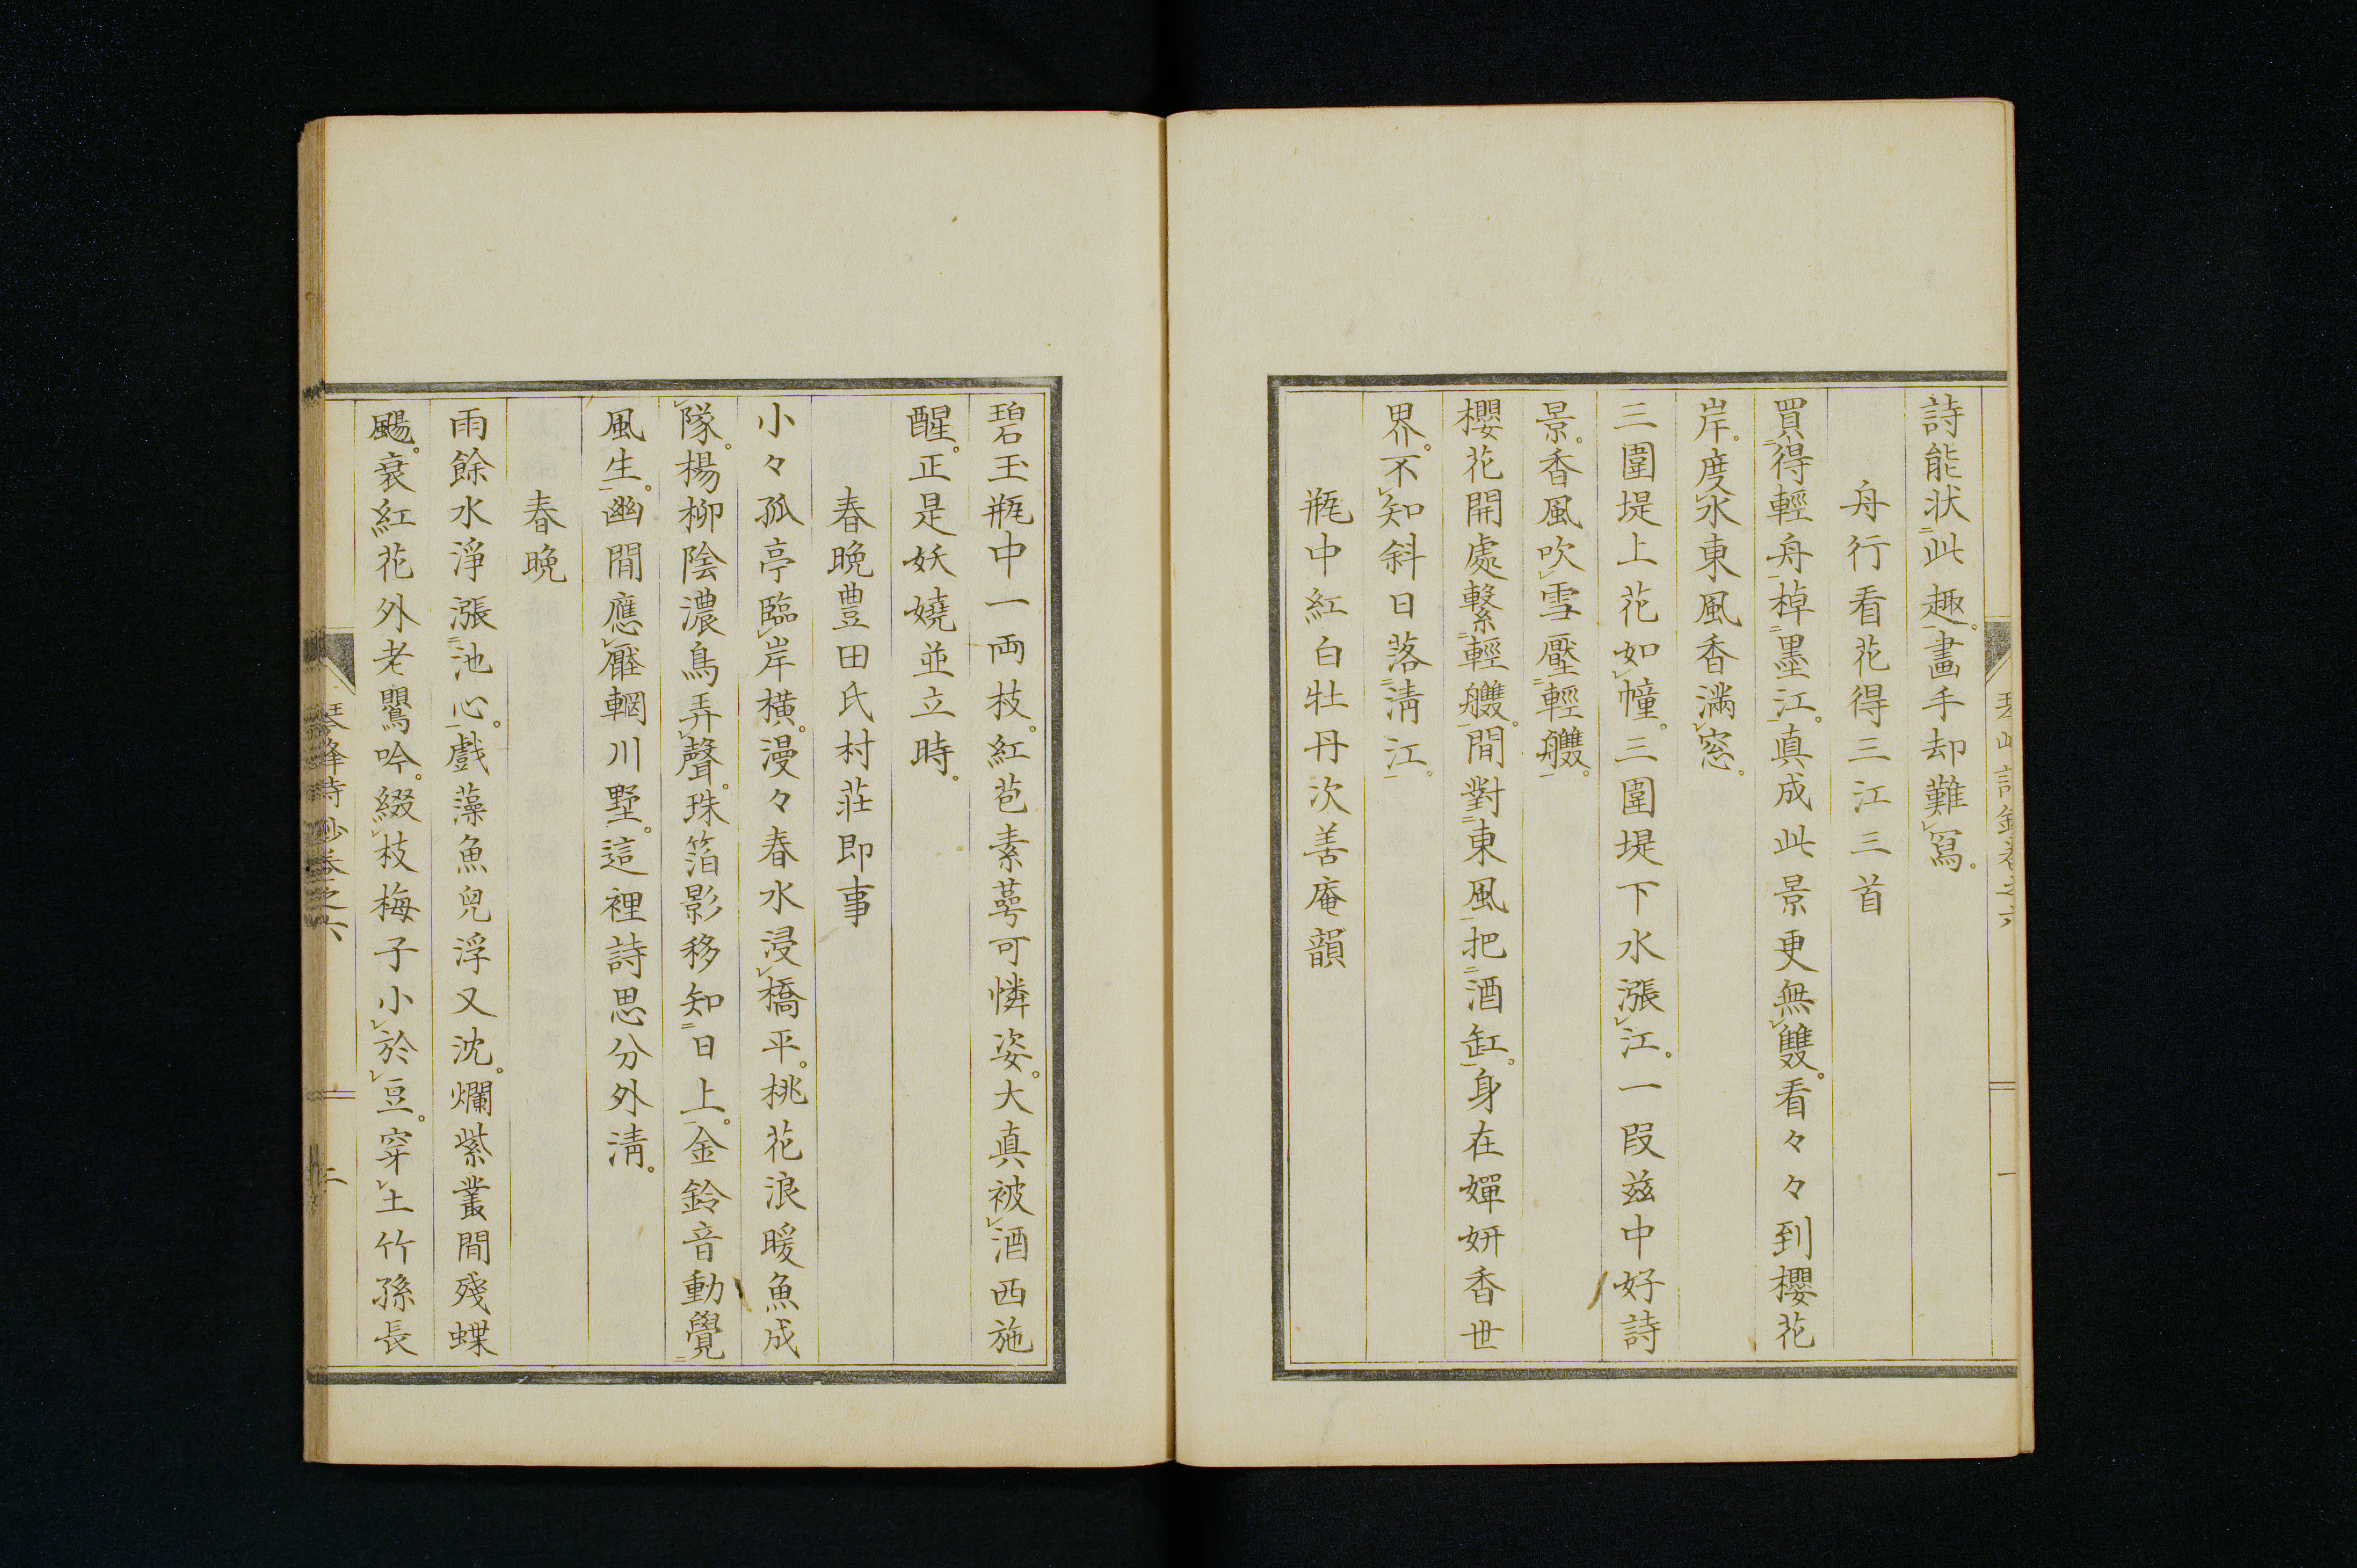 詩能状此趣。畫手却難寫。
舟行看花得三江三首
買得輕舟棹墨江。真成此景更無雙。看々々到櫻花
岸。度水東風香滿窓。
三圍堤上花如幢。三圍堤下水漲江。一段茲中好詩
景。香風吹雪壓輕艭。
櫻花開處繋輕艭。間對東風把酒缸。身在嬋妍香世
界。不知斜日落清江。
瓶中紅白牡丹次善庵韻
碧玉瓶中一両枝。紅苞素萼可憐姿。大真被酒西施
醒。正是妖嬈並立時。
春晩豊田氏村莊即事
小々孤亭臨岸横。漫々春水浸橋平。桃花浪暖魚成
隊。楊柳陰濃鳥弄聲。珠箔影移知日上。金鈴音動覺
風生。幽間應壓輞川墅。這裡詩思分外清。
春晩
雨餘水淨漲池心。戲藻魚兒浮又沈。爛紫叢間殘蝶
颺。衰紅花外老鸎吟。綴枝梅子小於豆。穿土竹孫長
琴峰詩鈔巻之六
二